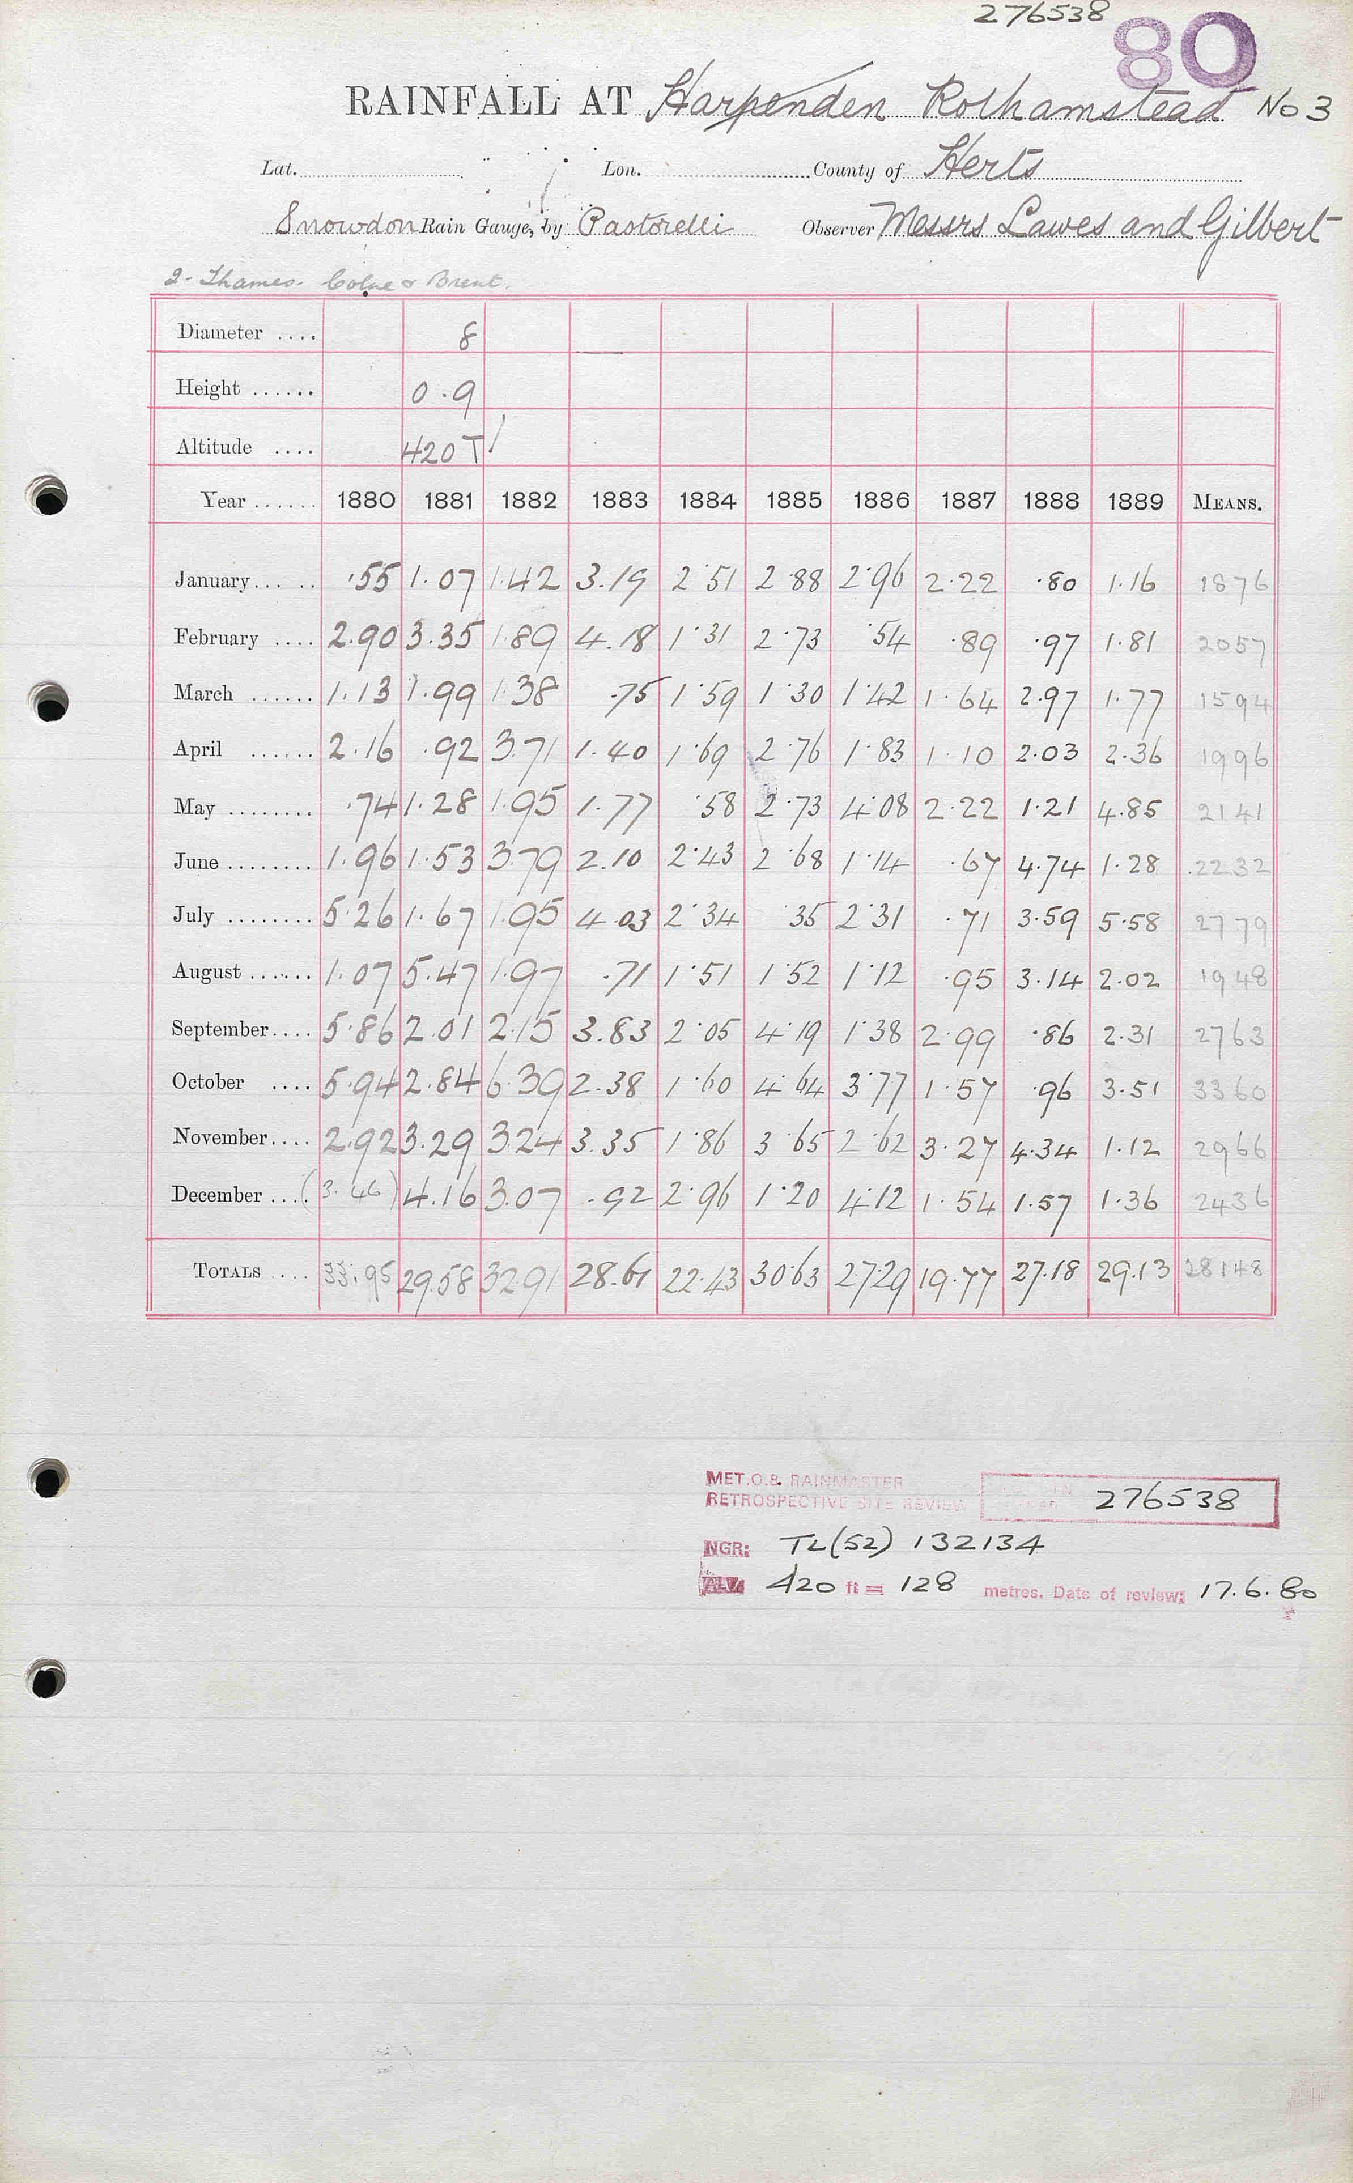 276538
80
RAINFALL AT Harpenden Rothamstead No 3
Lat. Lon. County of Herts
Snowdon Rain Gauge, by Pastorelli Observer Messrs Lawes and Gilbert
2 - Thames. Colne & Brent.
Diameter .... 8
Height ...... 0.9
Altitude .... 420 T
Year ...... 1880 1881 1882 1883 1884 1885 1886 1887 1888 1889 MEANS.
January ... .. .55 1.07 1.42 3.19 2.51 2.88 2.96 2.22 .80 1.16 1876
February .... 2.90 3.35 1.89 4.18 1.31 2.73 .54 .89 .97 1.81 2057
March ...... 1.13 1.99 1.38 .75 1.59 1.30 1.42 1.64 2.97 1.77 1594
April ...... 2.16 .92 3.71 1.40 1.69 2.76 1.83 1.10 2.03 2.36 1996
May ........ .74 1.28 1.95 1.77 .58 2.73 4.08 2.22 1.21 4.85 2141
June ........ 1.96 1.53 3.79 2.10 2.43 2.68 1.14 .67 4.74 1.28 2232
July ........ 5.26 1.67 1.95 4.03 2.34 35 2.31 .71 3.59 5.58 2779
August ...... 1.07 5.47 1.97 .71 1.51 1.52 1.12 .95 3.14 2.02 1948
September .... 5.86 2.01 2.15 3.83 2.05 4.19 1.38 2.99 .86 2.31 2763
October .... 5.94 2.84 6.39 2.38 1.60 4.64 3.77 1.57 .96 3.51 3360
November .... 2.92 3.29 3.24 3.35 1.86 3.65 2.62 3.27 4.34 1.12 2966
December .... (3.46) 4.16 3.07 .92 2.96 1.20 4.12 1.54 1.57 1.36 2436
TOTALS .... 33.95 29.58 32.91 28.61 22.43 30.63 27.29 19.77 27.18 29.13 28148
MET.O.8. RAINMASTER
RETROSPECTIVE SITE REVIEW 276538
NGR: TL(52) 132134
ALT: 420 ft = 128 metres. Date of review: 17.6.80